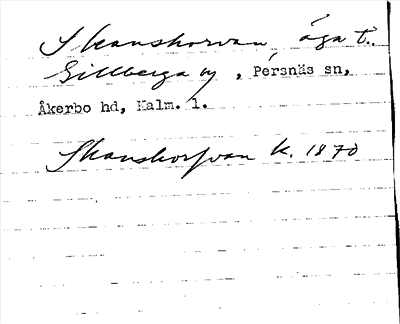 Skanskorvan, äga t.
Gillberga by, Persnäs sn,
Åkerbo hd, Kalm. l.
Skanskorfvan k. 1870